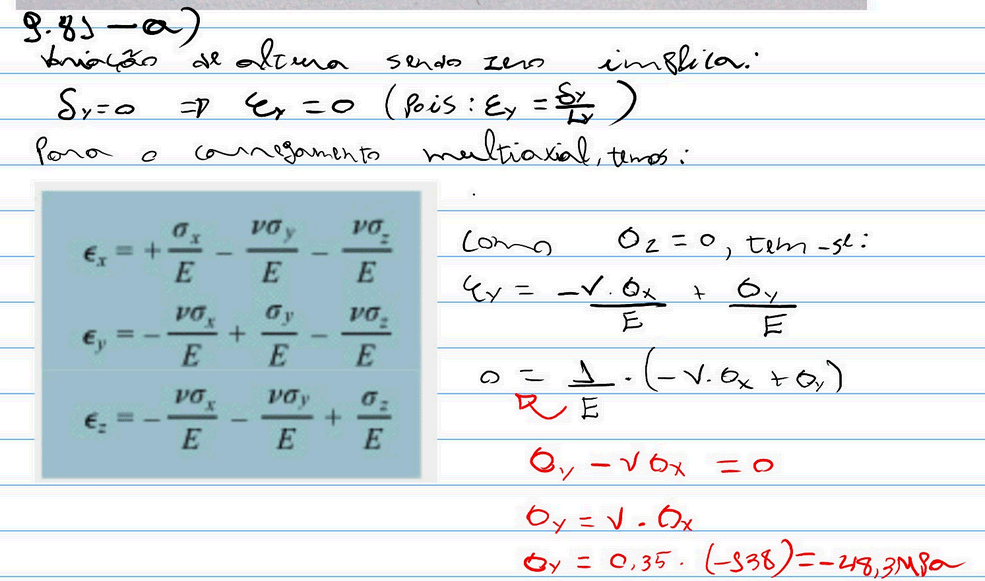 9.81 - a)
Variação de altura sendo zero implica:
δy=0 ⇒ εy = 0 (Pois: εy = δy/Ly)
Para o carregamento multiaxial, temos:
ϵx = + σx/E − νσy/E − νσz/E
ϵy = − νσx/E + σy/E − νσz/E
ϵz = − νσx/E − νσy/E + σz/E
Como σz = 0, tem-se:
εy = -ν.σx/E + σy/E
0 = 1/E . (-ν.σx + σy)
σy - νσx = 0
σy = ν . σx
σy = 0,35 . (-138) = -48,3MPa